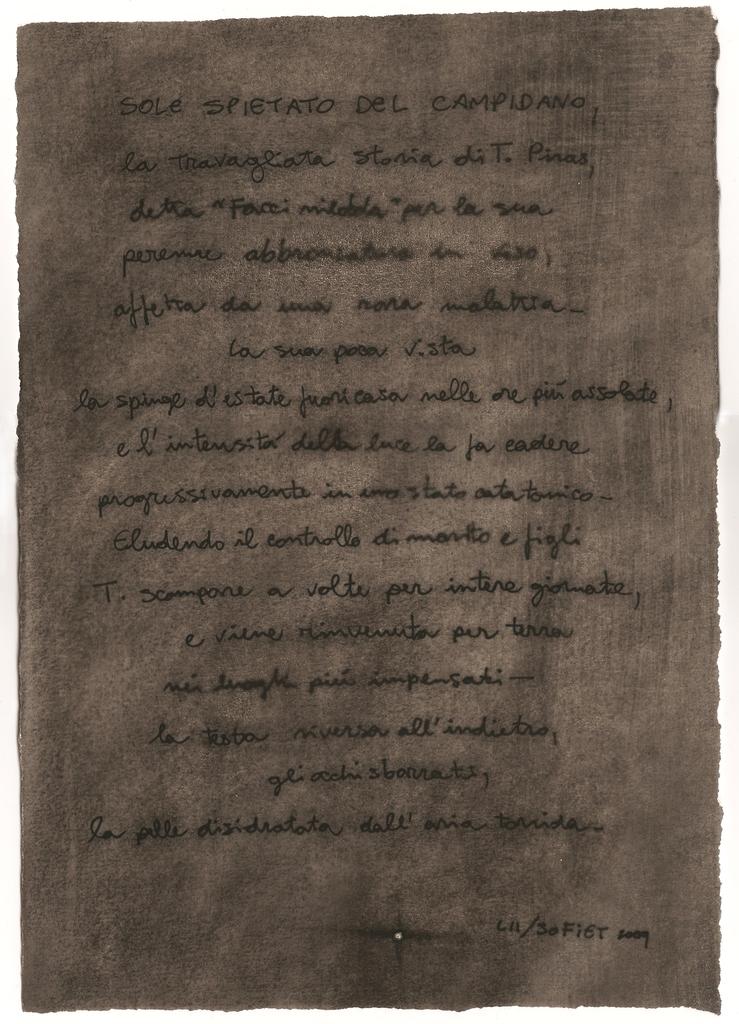 SOLE SPIETATO DEL CAMPIDANO,
la travagliata storia di T. Piras,
detta "Facci niedda" per la sua
perenne abbronzatura in viso,
affetta da una rara malattia_
la sua poca vista
la spinge d'estate fuori casa nelle ore più assolate,
e l'intensità della luce la fa cadere
progressivamente in uno stato catatonico_
Eludendo il controllo di marito e figli
T. scompare a volte per intere giornate,
e viene rinvenuta per terra
nei luoghi più impensati_
la testa riversa all'indietro,
gli occhi sbarrati,
la pelle disidratata dall'aria torrida_
SOFIET 2009